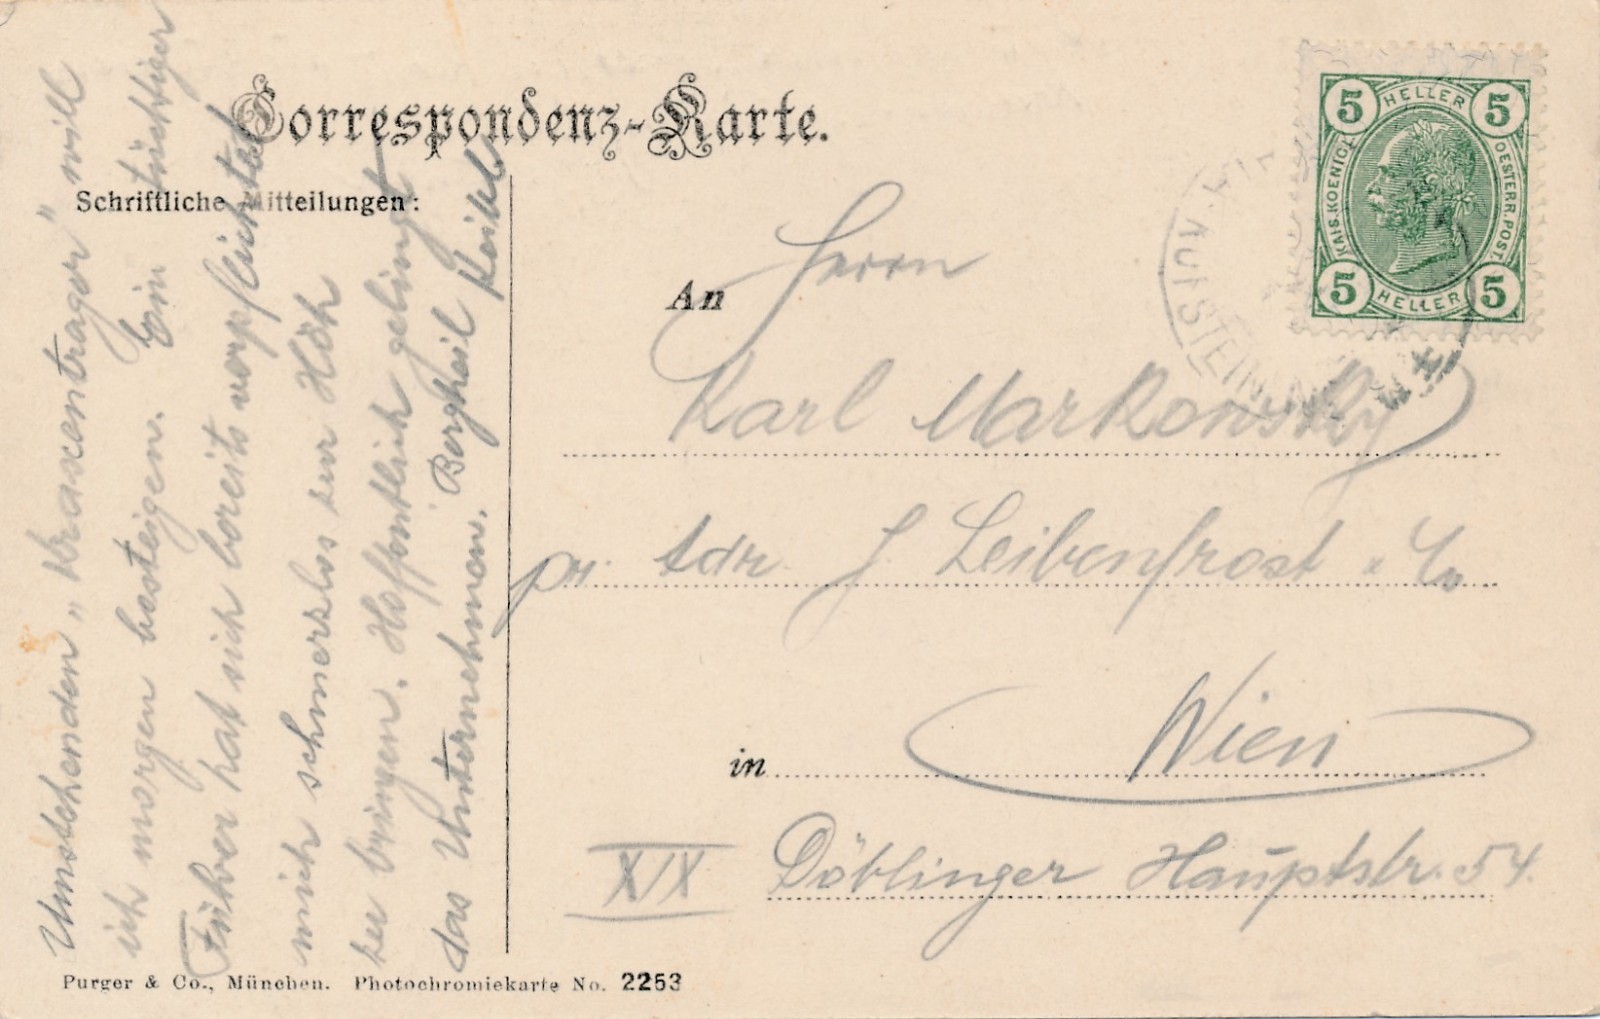 Correspondenz-Karte.
Schriftliche Mitteilungen:
Umstehenden „Kraxentrager" will
ich morgen besteigen. Ein tüchtiger
Führer hat sich bereits verpflichtet
mich schmerzlos zur Höh
zu bringen. Hoffentlich gelingt
das Unternehmen. Bergheil
An
Herrn
Karl Markowsky
pr. Adr. J. Leibenfrost & Co
in Wien
XIX Döblinger Hauptstr. 54.
5 HELLER 5
KAIS. KOENIGL. OESTERR. POST.
5 HELLER 5
KUFSTEIN
Purger & Co., München. Photochromiekarte No. 2253